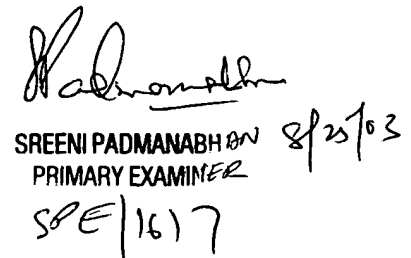 Padmanabhan
SREENI PADMANABHAN 8/25/03
PRIMARY EXAMINER
SPE/1617